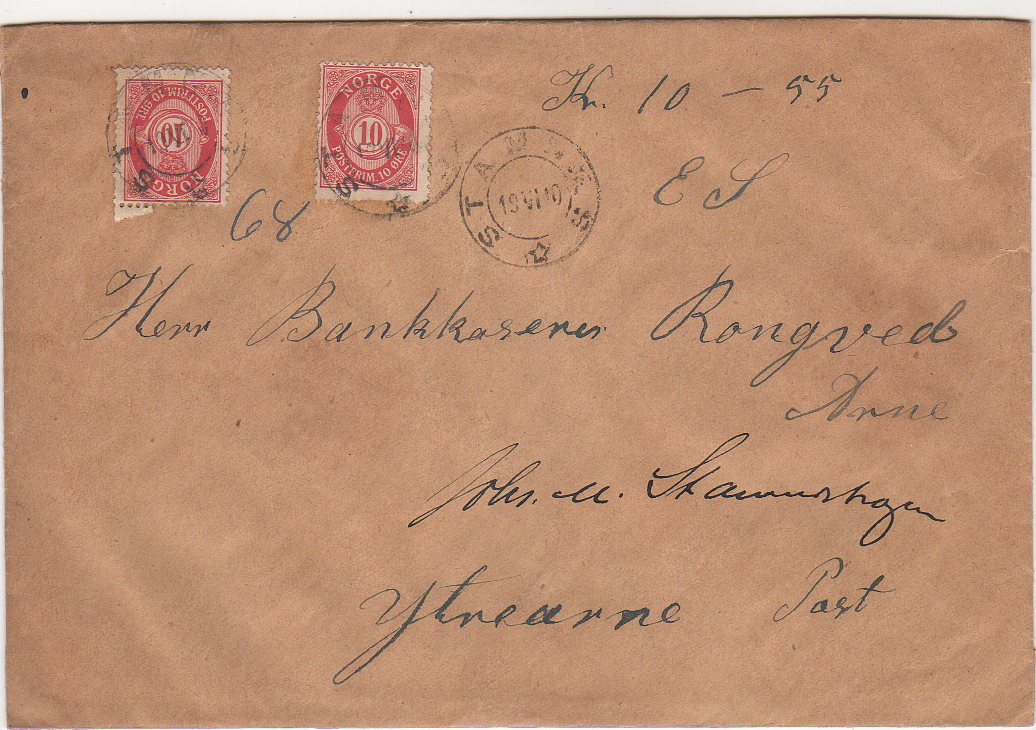 NORGE
10
POSTFRIM. 10 ØRE
NORGE
10
POSTFRIM. 10 ØRE
Kr. 10 - 55
STAMNES
19 VI 10
E S
68
Herr Bankkaserer Rongved
Arne
Johs. M.
Ytrearne Post